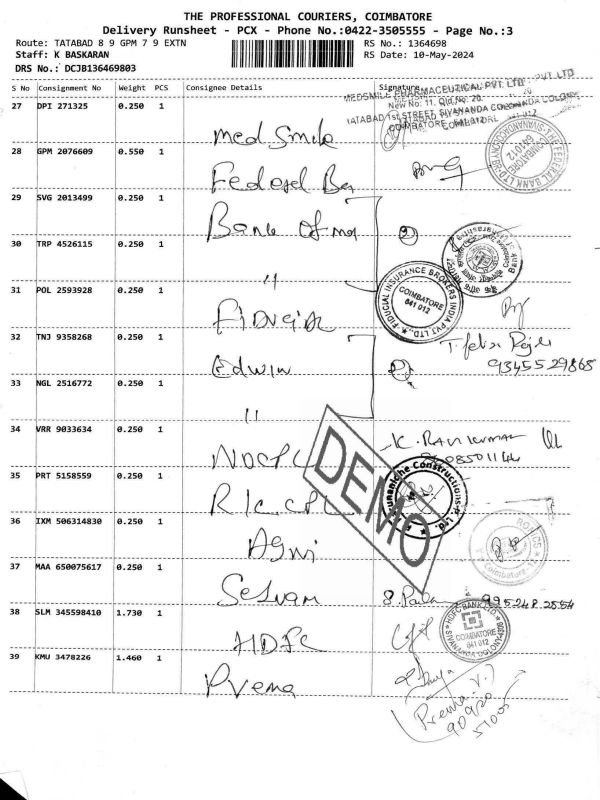 THE PROFESSIONAL COURIERS, COIMBATORE
Delivery Runsheet - PCX - Phone No.:0422-3505555 - Page No.:3
Route: TATABAD 8 9 GPM 7 9 EXTN
RS No.: 1364698
Staff: K BASKARAN
RS Date: 10-May-2024
DRS No.: DCJB136469803
S No Consignment No Weight PCS Consignee Details Signature
27 DPI 271325 0.250 1
MEDSMILE PHARMACEUTICAL PVT. LTD
New No: 11, Old No: 20,
TATABAD 1st STREET SIVANANDA COLONY
COIMBATORE - 641 012
Med Smile
28 GPM 2076609 0.550 1
Federal Ba
THE FEDERAL BANK LTD
COIMBATORE
641012
29 SVG 2013499 0.250 1
Bank of ma
2
30 TRP 4526115 0.250 1
"
31 POL 2593928 0.250 1
FIDUCIAL INSURANCE BROKERS INDIA PVT LTD.
COIMBATORE
641 012
32 TNJ 9358268 0.250 1
T. felix
Edwin
2
33 NGL 2516772 0.250 1
"
34 VRR 9033634 0.250 1
K. Ravi kumar
35 PRT 5158559 0.250 1
DEMO
36 IXM 506314830 0.250 1
Agni
37 MAA 650075617 0.250 1
Selvam
995248 2554
38 SLM 345598410 1.730 1
HDFC
HDFC BANK LTD.
COIMBATORE
641 012
39 KMU 3478226 1.460 1
Prema
Prema